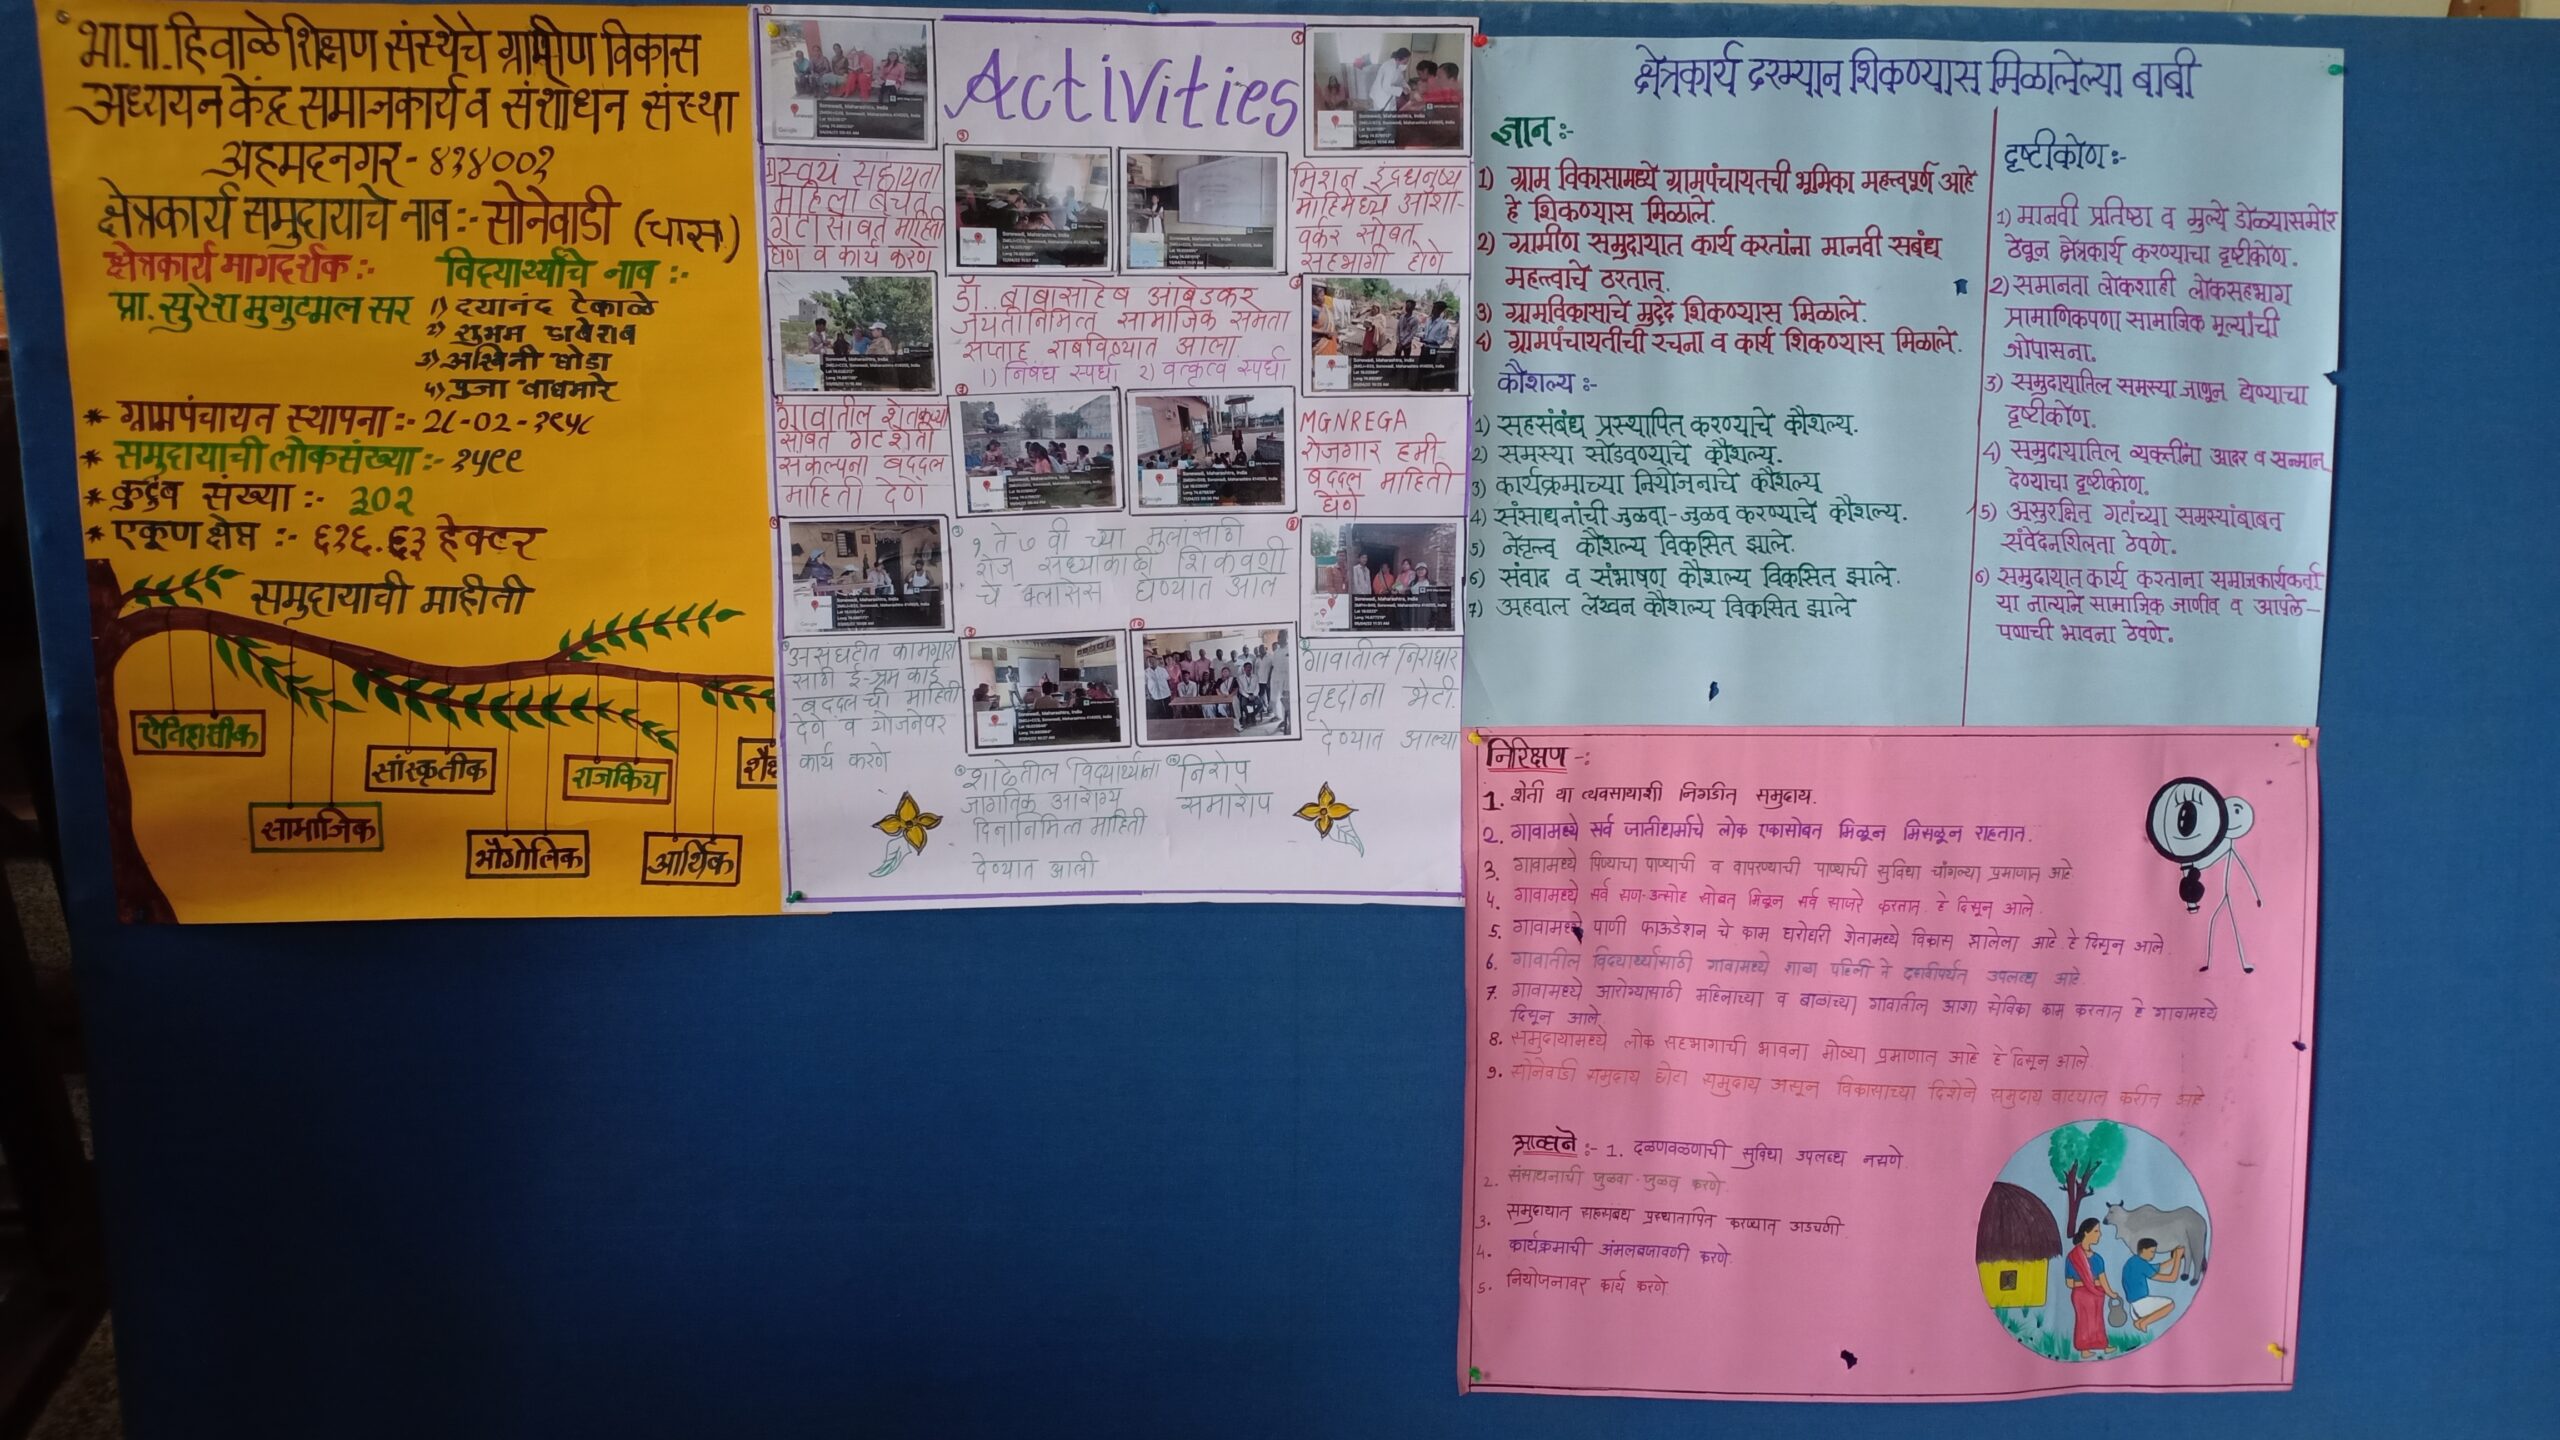 भा.पा.हिवाळे शिक्षण संस्थेचे ग्रामीण विकास
अध्ययन केंद्र समाजकार्य व संशोधन संस्था
अहमदनगर - ४१४००१
क्षेत्रकार्य समुदायाचे नाव :- सोनेवाडी (चास)
क्षेत्रकार्य मार्गदर्शक :-
प्रा. सुरेश मुगुटमल सर
विद्यार्थ्यांचे नाव :-
१) दयानंद टेकाळे
२) शुभम
३) अश्विनी घोडा
४) पुजा वाघमारे
* ग्रामपंचायत स्थापना :- २८-०२-१९५८
* समुदायाची लोकसंख्या :- १५९९
* कुटुंब संख्या :- ३०२
* एकूण क्षेत्र :- ६१६.६३ हेक्टर
समुदायाची माहीती
ऐतिहासीक
सामाजिक
सांस्कृतीक
भौगोलिक
राजकिय
आर्थिक
Activities
स्वयं सहायता
महिला बचत
गटासोबत माहिती
घेणे व कार्य करणे
मिशन इंद्रधनुष्य
मोहिमेमध्ये आशा-
वर्कर सोबत
सहभागी होणे
डॉ. बाबासाहेब आंबेडकर
जयंतीनिमित्त सामाजिक समता
सप्ताह राबविण्यात आला.
१) निबंध स्पर्धा २) वक्तृत्व स्पर्धा
गावातील शेतकऱ्यां
सोबत गटशेती
संकल्पना बद्दल
माहिती देणे
MGNREGA
रोजगार हमी
बद्दल माहिती
घेणे
१ ते ७ वी च्या मुलांसाठी
रोज संध्याकाळी शिकवणी
चे क्लासेस घेण्यात आले
असंघटीत कामगारां
साठी ई-श्रम कार्ड
बद्दलची माहिती
देणे व योजनेवर
कार्य करणे
शाळेतील विद्यार्थ्यांना
जागतिक आरोग्य
दिनानिमित्त माहिती
देण्यात आली
निरोप
समारोप
गावातील निराधार
वृद्धांना भेटी
देण्यात आल्या
क्षेत्रकार्य दरम्यान शिकण्यास मिळालेल्या बाबी
ज्ञान :-
1) ग्राम विकासामध्ये ग्रामपंचायतची भूमिका महत्त्वपूर्ण आहे
हे शिकण्यास मिळाले.
2) ग्रामीण समुदायात कार्य करतांना मानवी सबंध
महत्त्वाचे ठरतात.
3) ग्रामविकासाचे मुद्दे शिकण्यास मिळाले.
4) ग्रामपंचायतीची रचना व कार्य शिकण्यास मिळाले.
कौशल्य :-
1) सहसंबंध प्रस्थापित करण्याचे कौशल्य.
2) समस्या सोडवण्याचे कौशल्य.
3) कार्यक्रमाच्या नियोजनाचे कौशल्य
4) संसाधनांची जुळवा-जुळव करण्याचे कौशल्य.
5) नेतृत्व कौशल्य विकसित झाले.
6) संवाद व संभाषण कौशल्य विकसित झाले.
7) अहवाल लेखन कौशल्य विकसित झाले
दृष्टीकोण :-
1) मानवी प्रतिष्ठा व मुल्ये डोळ्यासमोर
ठेवून क्षेत्रकार्य करण्याचा दृष्टीकोण.
2) समानता लोकशाही लोकसहभाग
प्रामाणिकपणा सामाजिक मूल्यांची
जोपासना.
3) समुदायातिल समस्या जाणून घेण्याचा
दृष्टीकोण.
4) समुदायातिल व्यक्तींना आदर व सन्मान
देण्याचा दृष्टीकोण.
5) असुरक्षित गटांच्या समस्यांबाबत
संवेदनशिलता ठेवणे.
6) समुदायात कार्य करताना समाजकार्यकर्ता
या नात्याने सामाजिक जाणीव व आपले-
पणाची भावना ठेवणे.
निरिक्षण -:
1. शेती या व्यवसायाशी निगडीत समुदाय.
2. गावामध्ये सर्व जातीधर्माचे लोक एकासोबत मिळून मिसळून राहतात.
3. गावामध्ये पिण्याचा पाण्याची व वापरण्याची पाण्याची सुविधा चांगल्या प्रमाणात आहे
4. गावामध्ये सर्व सण-उत्सोह सोबत मिळून सर्व साजरे करतात. हे दिसून आले.
5. गावामध्ये पाणी फाऊडेशन चे काम घरोघरी शेतामध्ये विकास झालेला आहे. हे दिसून आले.
6. गावातील विद्यार्थ्यांसाठी गावामध्ये शाळा पहिली ते दहावीपर्यंत उपलब्ध आहे.
7. गावामध्ये आरोग्यासाठी महिलाच्या व बाळांच्या गावातील आशा सेविका काम करतात हे गावामध्ये
दिसून आले.
8. समुदायामध्ये लोक सहभागाची भावना मोठ्या प्रमाणात आहे हे दिसून आले.
9. सोनेवाडी समुदाय छोटा समुदाय असून विकासाच्या दिशेने समुदाय वाटचाल करीत आहे.
आव्हाने :- 1. दळणवळणाची सुविधा उपलब्ध नसणे.
2. संसाधनाची जुळवा-जुळव करणे.
3. समुदायात सहसंबंध प्रस्थातापित करण्यात अडचणी
4. कार्यक्रमाची अंमलबजावणी करणे.
5. नियोजनावर कार्य करणे.